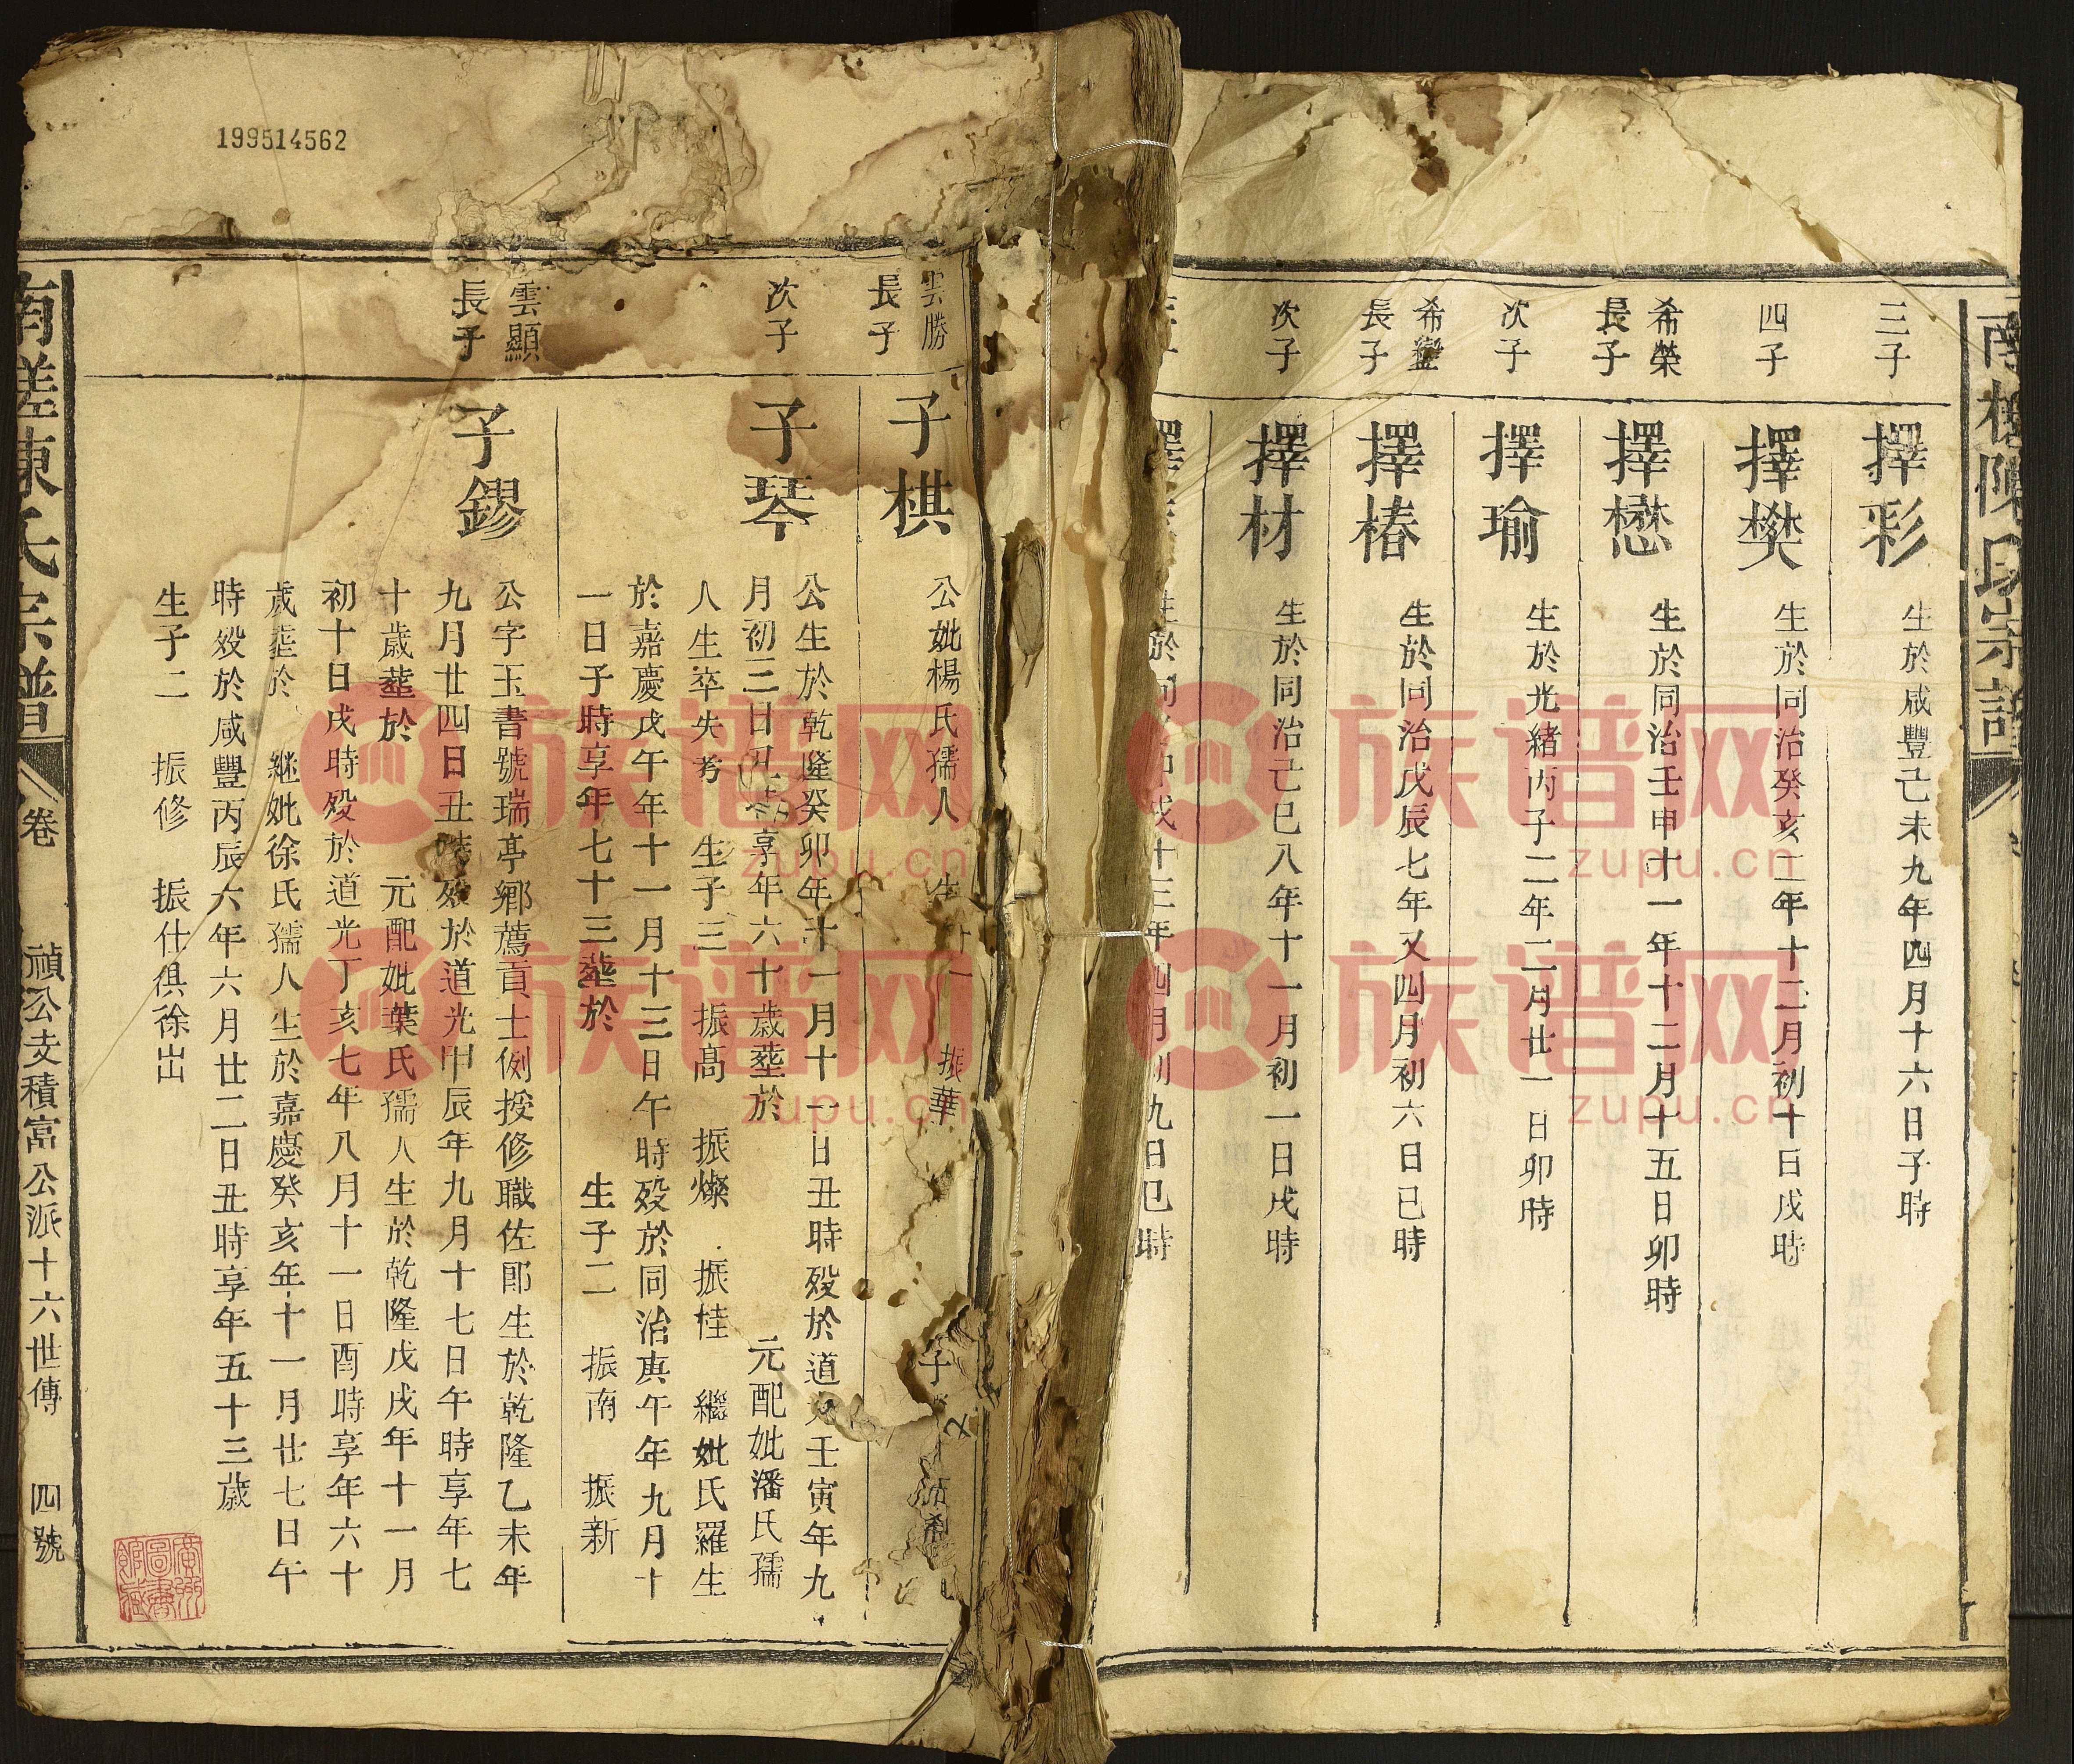 三子
擇彩
生於咸豐己未九年四月十六日子時
四子
擇樊
生於同治癸亥二年十二月初十日戌時
希榮
長子
擇懋
生於同治壬申十一年十二月十五日卯時
次子
擇瑜
生於光緒丙子二年二月廿一日卯時
希鑾
長子
擇椿
生於同治戊辰七年又四月初六日巳時
次子
擇材
生於同治己巳八年十一月初一日戌時
擇
生於同 戌十三年四月初九日巳時
雲勝
長子
子棋
公妣楊氏孺人 生 振華 子
次子
子琴
公生於乾隆癸卯年十一月十一日丑時歿於道 壬寅年九
月初三日 享年六十歲塟於 元配妣潘氏孺
人生卒失考 生子三 振高 振燦 振桂 繼妣氏羅生
於嘉慶戊午年十一月十三日午時歿於同治庚午年九月十
一日子時享年七十三塟於 生子二 振南 振新
雲顯
長子
子鏐
公字玉書號瑞亭鄉薦貢士例授修職佐郎生於乾隆乙未年
九月廿四日丑時歿於道光甲辰年九月十七日午時享年七
十歲塟於 元配妣葉氏孺人生於乾隆戊戌年十一月
初十日戌時歿於道光丁亥七年八月十一日酉時享年六十
歲塟於 継妣徐氏孺人生於嘉慶癸亥年十一月廿七日午
時歿於咸豐丙辰六年六月廿二日丑時享年五十三歲
生子二 振修 振仕俱徐出
南槎陳氏宗譜
卷
禎公支積富公派十六世傳
四號
199514562
廣州圖書館藏
族谱网
zupu.cn
族谱网
zupu.cn
族谱网
zupu.cn
族谱网
zupu.cn